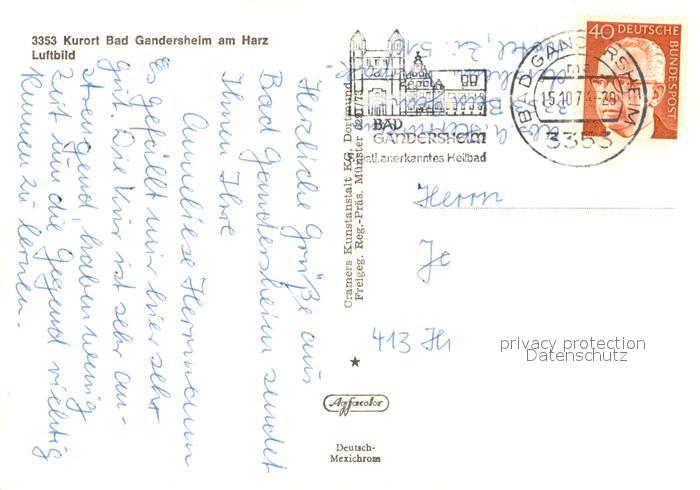 3353 Kurort Bad Gandersheim am Harz
Luftbild
Herzliche Grüße aus
Bad Gandersheim sendet
Ihnen Ihre
Anneliese Herrmann
Es gefällt mir hier sehr
gut. Die Kur ist sehr an-
strengend, haben wenig
Zeit um die Gegend richtig
kennen zu lernen.
Cramers Kunstanstalt KG, Dortmund
Freigeg. Reg.-Präs. Münster
BAD
GANDERSHEIM
Staatl. anerkanntes Heilbad
BAD GANDERSHEIM
15.10.74
3353
40 DEUTSCHE
BUNDESPOST
Herrn
413
privacy protection
Datenschutz
Agfacolor
Deutsch-
Mexichrom